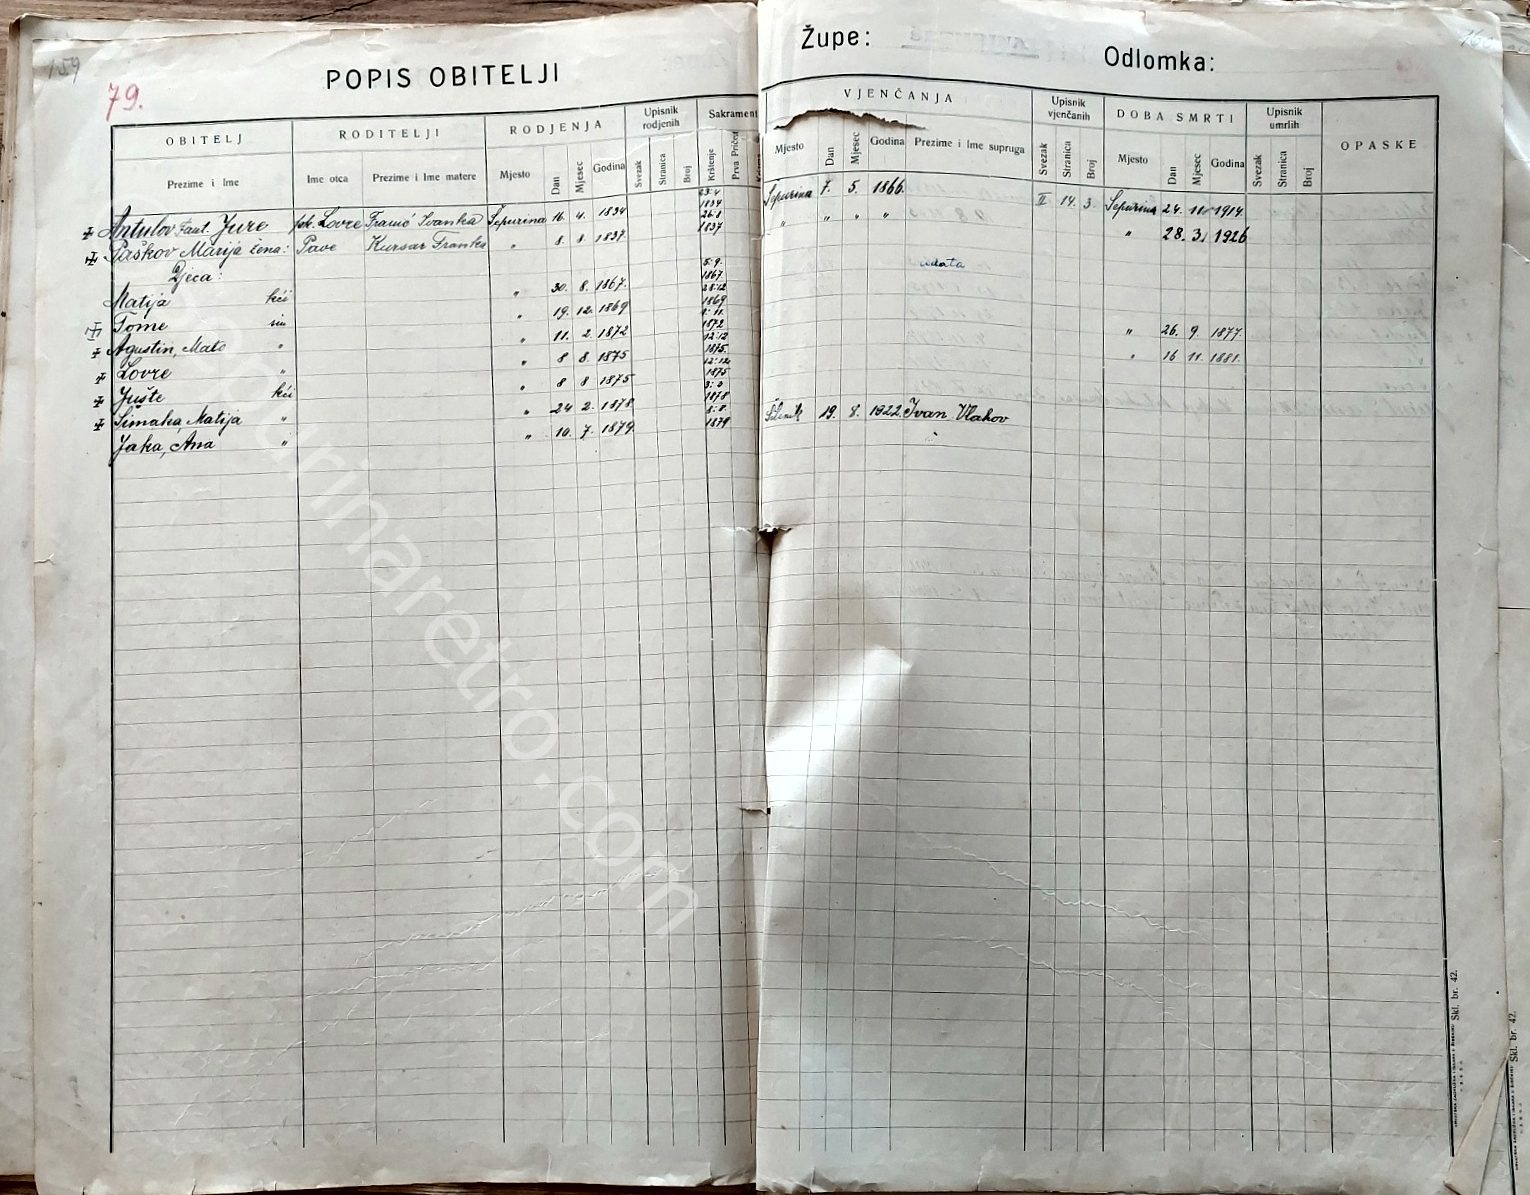 159
79.
POPIS OBITELJI
Župe:
Odlomka:
160
OBITELJ RODITELJI RODJENJA Upisnik rodjenih Sakrament VJENČANJA Upisnik vjenčanih DOBA SMRTI Upisnik umrlih OPASKE
Prezime i Ime Ime otca Prezime i Ime matere Mjesto Dan Mjesec Godina Svezak Stranica Broj Krštenje Prva Pričest Mjesto Dan Mjesec Godina Prezime i Ime supruga Svezak Stranica Broj Mjesto Dan Mjesec Godina Svezak Stranica Broj
Antulov Jure pk. Lovre Franić Ivanka Šepurina 16. 4. 1834 23.4 1834 Šepurina 7. 5. 1866. II 14. 3. Šepurina 24. 11. 1914.
Paškov Marija žena: Pave Kursar Franka " 8. 8. 1837. 26.8 1837 " " " " " 28. 3. 1926
Djeca:
Matija kći " 30. 8. 1867. 5.9. 1867 udata
Tome sin " 19. 12. 1869 28.12 1869
Agustin, Mate " " 11. 2. 1872 1872 " 26. 9. 1877.
Lovre " " 8 8. 1875 12.12 1875. " 16 11. 1881.
Jušte kći " 8 8. 1875 12.12 1875
Šimaka, Matija " " 24 2. 1878. 3.3 1878
Jaka, Ana " " 10. 7. 1879. 8.8. 1879 Šibenik 19. 8. 1922. Ivan Vlahov
sepurinaretro.com
Skl. br. 42.
Skl. br. 42.